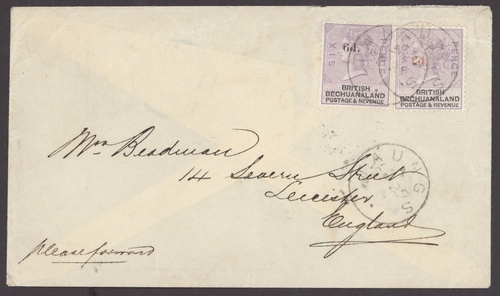 SIX 6d. PENCE
BRITISH
BECHUANALAND
POSTAGE & REVENUE
PENCE
BRITISH
BECHUANALAND
POSTAGE & REVENUE
Mrs Beadman
14 Severn Street
Leicester
England
please forward
TUNGS